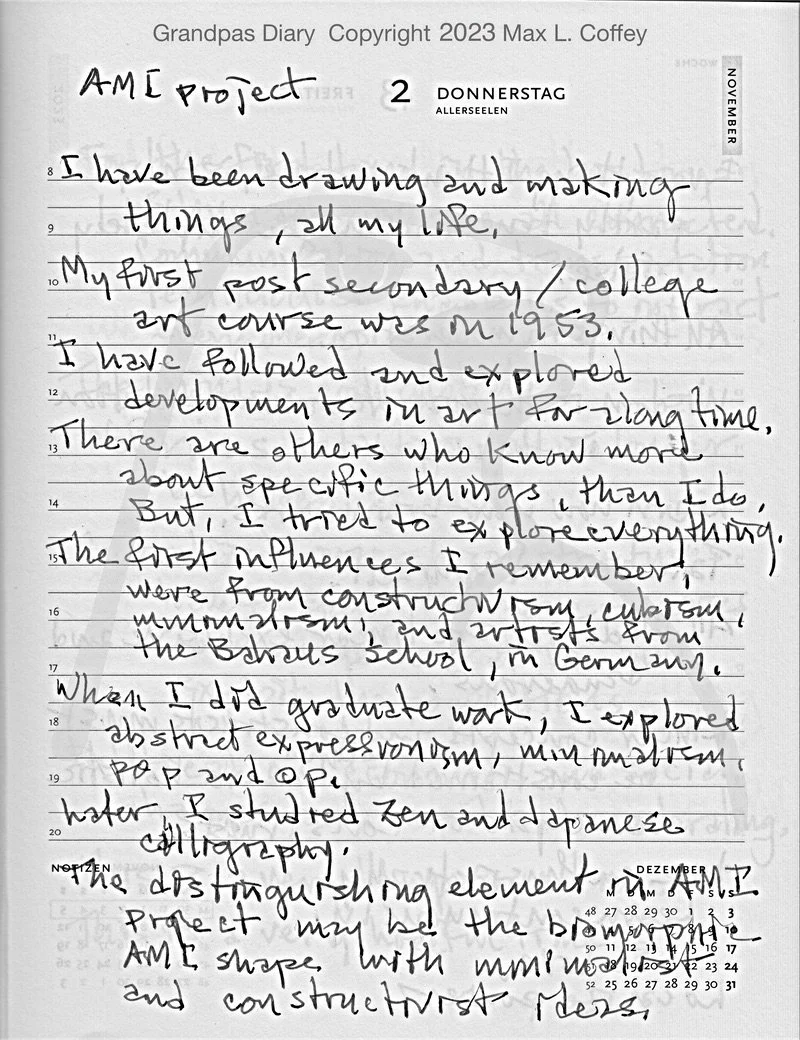 Grandpas Diary Copyright 2023 Max L. Coffey
AMI project
2 DONNERSTAG
ALLERSEELEN
NOVEMBER
8 I have been drawing and making
9 things, all my life.
10 My first post secondary / college
art course was in 1953.
11 I have followed and explored
12 developments in art for a long time.
13 There are others who know more
about specific things, than I do.
14 But, I tried to explore everything.
15 The first influences I remember,
were from constructivism, cubism,
16 minimalism, and artists from
the Bahaus school, in Germany.
17
When I did graduate work, I explored
18 abstract expressionism, minimalism,
19 pop and op.
Later, I studied Zen and Japanese
20 calligraphy.
NOTIZEN
DEZEMBER
The distinguishing element in AMI
project may be the biomorphic
AMI shape with minimalist
and constructivist ideas.
M D M D F S S
48 27 28 29 30 1 2 3
8 9 10
50 11 12 13 14 15 16 17
18 19 20 21 22 23 24
52 25 26 27 28 29 30 31